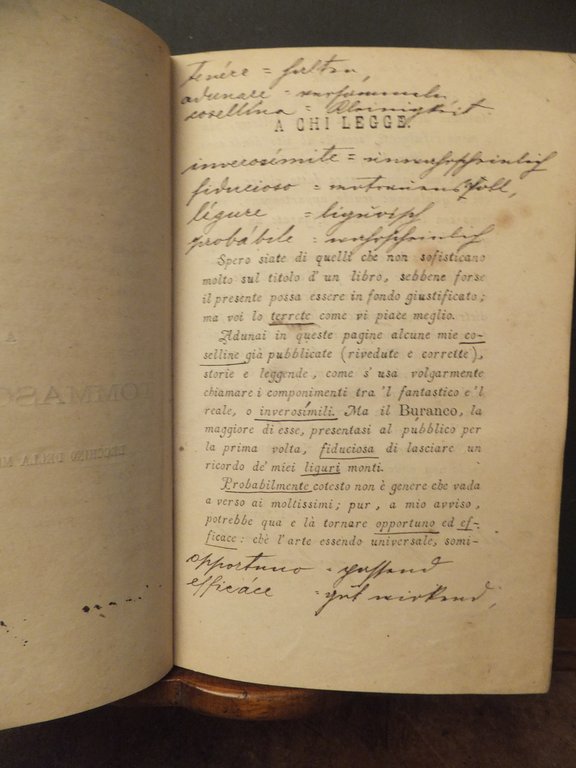 tenére = halten
adunare = versammeln
cosellina = Kleinigkeit
A CHI LEGGE.
inverosímile = unwahrscheinlich
fiducioso = vertrauensvoll,
lígure = ligurisch
probábile = wahrscheinlich
Spero siate di quelli che non sofisticano
molto sul titolo d'un libro, sebbene forse
il presente possa essere in fondo giustificato;
ma voi lo terrete come vi piace meglio.
Adunai in queste pagine alcune mie co-
selline già pubblicate (rivedute e corrette),
storie e leggende, come s'usa volgarmente
chiamare i componimenti tra 'l fantastico e 'l
reale, o inverosímili. Ma il Buranco, la
maggiore di esse, presentasi al pubblico per
la prima volta, fiduciosa di lasciare un
ricordo de' miei liguri monti.
Probabilmente cotesto non è genere che vada
a verso ai moltissimi; pur, a mio avviso,
potrebbe qua e là tornare opportuno ed ef-
ficace: chè l'arte essendo universale, somi-
opportuno = passend
efficáce = gut wirkend,